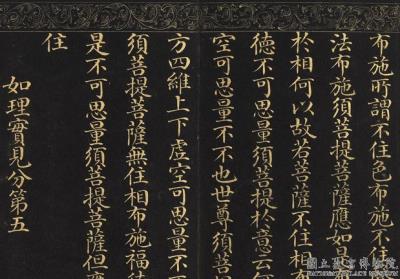 布施所謂不住色布施不住
法布施須菩提菩薩應如是
於相何以故若菩薩不住相
德不可思量須菩提於意云
空可思量不不也世尊須菩
方四維上下虛空可思量不
須菩提菩薩無住相布施福德
是不可思量須菩提菩薩但應
住
如理實見分第五
國立故宮博物院